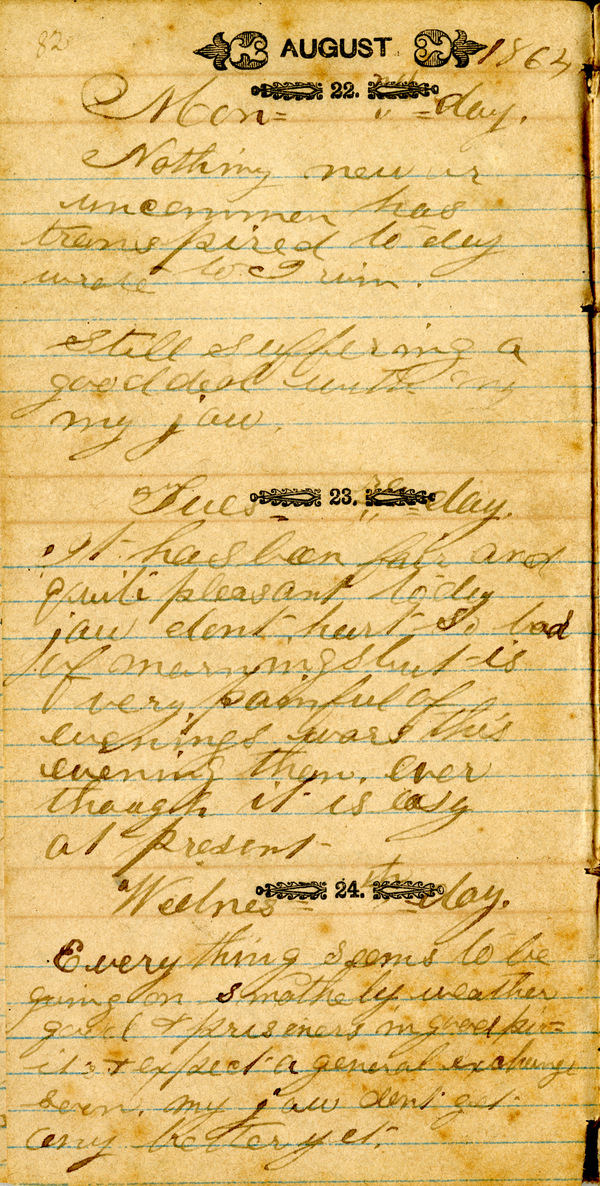 82
AUGUST 1864
Mon= 22. nd =day.
Nothing new or
uncommon has
transpired to day
wrote to
Still suffering a
good deal with my
my jaw.
Tues= 23. rd =day.
It has been fair and
quite pleasant to day
jaw dont hurt so bad
of mornings but is
very painful of
evenings wors this
evening than ever
though it is easy
at present
Wednes= 24. th =day.
Every thing seems to be
going on smothely weather
good & prisoners in good spir=
its & expect a general exchange
soon. my jaw dont get
any better yet.